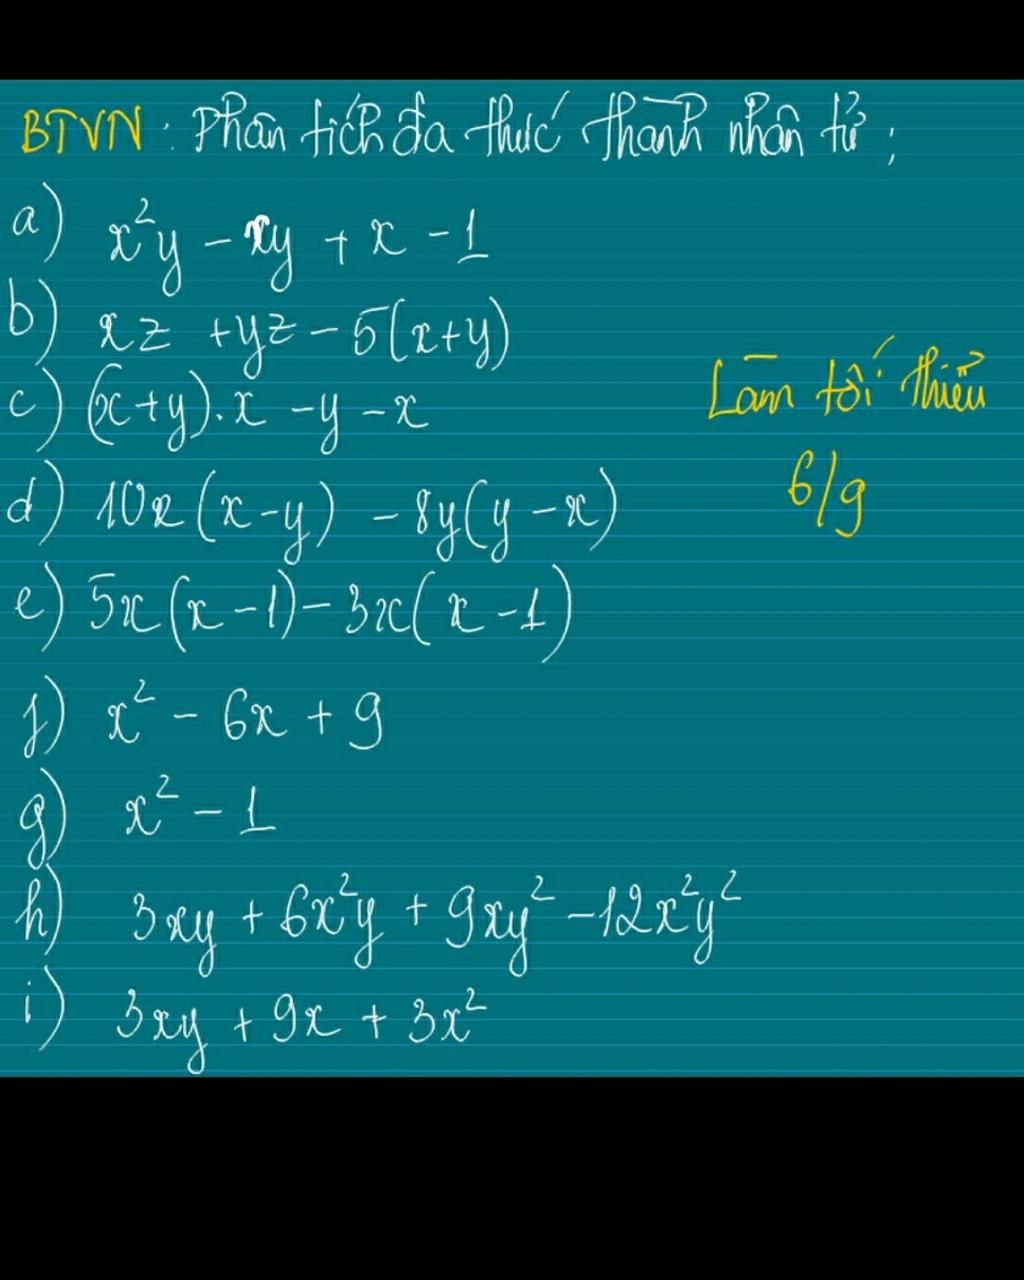 BTVN : Phân tích đa thức thành nhân tử ;
a) x²y - xy + x - 1
b) xz + yz - 5(x+y)
c) (x+y).x - y - x
d) 10x(x-y) - 8y(y-x)
e) 5x(x-1) - 3x(x-1)
f) x² - 6x + 9
g) x² - 1
h) 3xy + 6x²y + 9xy² - 12x²y²
i) 3xy + 9x + 3x²
Làm tối thiểu
6/9